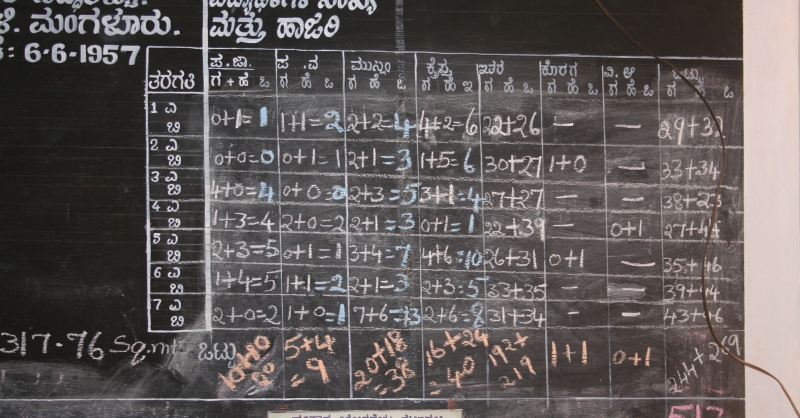 ಮತ್ತು ಹಾಜರಿ
ಮಂಗಳೂರು.
6-6-1957
ತರಗತಿ ಪ.ಜಾ. ಪ.ವ ಮುಸ್ಲಿಂ ಕ್ರೈಸ್ತ ಇತರ ಕೊರಗ ವಿ. ಒಟ್ಟು
ಗ+ಹೆ ಒ ಗ ಹೆ ಒ ಗ ಹೆ ಒ ಗ ಹೆ ಇ ಗ ಹೆ ಒ ಗ ಹೆ ಒ ಗ ಹೆ ಒ ಗ ಹೆ ಒ
1 ಎ
ಬಿ 0+1=1 1+1=2 2+2=4 4+2=6 22+26 — — 29+32
2 ಎ
ಬಿ 0+0=0 0+1=1 2+1=3 1+5=6 30+27 1+0 — 33+34
3 ಎ
ಬಿ 4+0=4 0+0=0 2+3=5 3+1=4 27+27 — —
4 ಎ
ಬಿ 1+3=4 2+0=2 2+1=3 0+1=1 22+39 — 0+1 27+44
5 ಎ
ಬಿ 2+3=5 0+1=1 3+4=7 4+6=10 26+31 0+1 — 35+46
6 ಎ
ಬಿ 1+4=5 1+1=2 2+1=3 2+3=5 33+35 — — 39+44
7 ಎ
ಬಿ 2+0=2 1+0=1 7+6=13 2+6=8 31+34 — — 43+46
317-76 Sq.mts ಒಟ್ಟು 5+4=9 20+18=38 16+24=40 192+219 1+1 0+1 244+269